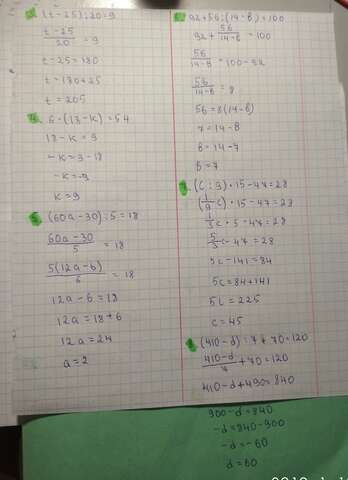 3. (t-25):20=9
t-25/20 = 9
t-25=180
t=180+25
t=205
4. 6·(18-k)=54
18-k=9
-k=9-18
-k=-9
k=9
5. (60a-30):5=18
60a-30/5 = 18
5(12a-6)/5 = 18
12a-6=18
12a=18+6
12a=24
a=2
6. 92+56:(14-b)=100
92+56/14-b=100
56/14-b=100-92
56/14-b=8
56=8(14-b)
7=14-b
b=14-7
b=7
7. (c:9)·15-47=28
(1/9c)·15-47=28
1/3c·5-47=28
5/3c-47=28
5c-141=84
5c=84+141
5c=225
c=45
8. (410-d):7+70=120
410-d/7+70=120
410-d+490=840
900-d=840
-d=840-900
-d=-60
d=60